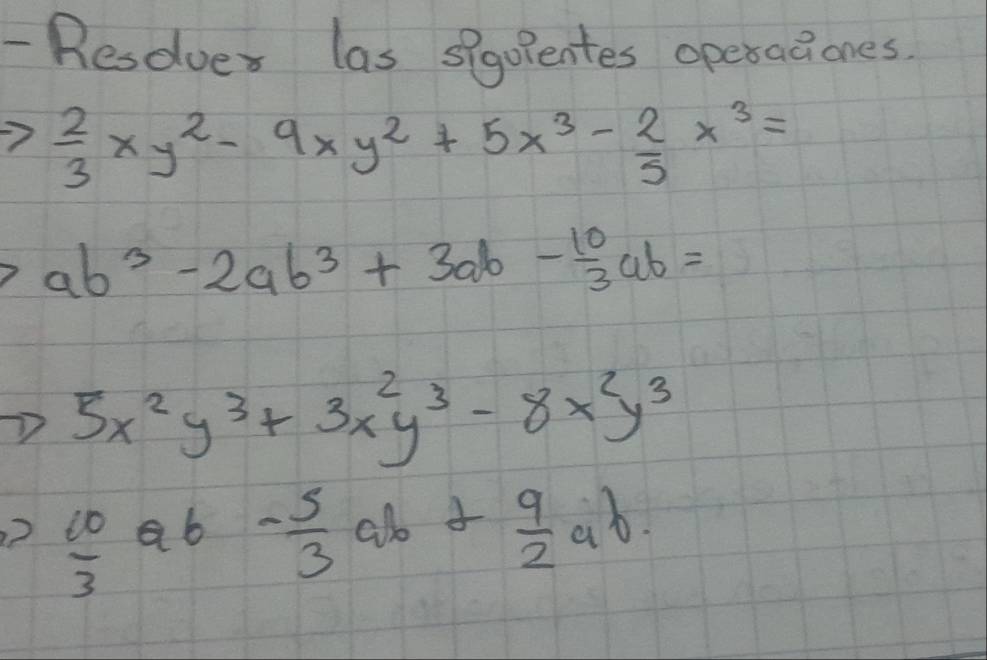 - Resolver las siguientes operaciones.
→ 2/3 xy² - 9xy² + 5x³ - 2/5 x³ =
> ab³ - 2ab³ + 3ab - 10/3 ab =
→ 5x²y³ + 3x²y³ - 8x²y³
→ 10/3 ab - 5/3 ab + 9/2 ab.